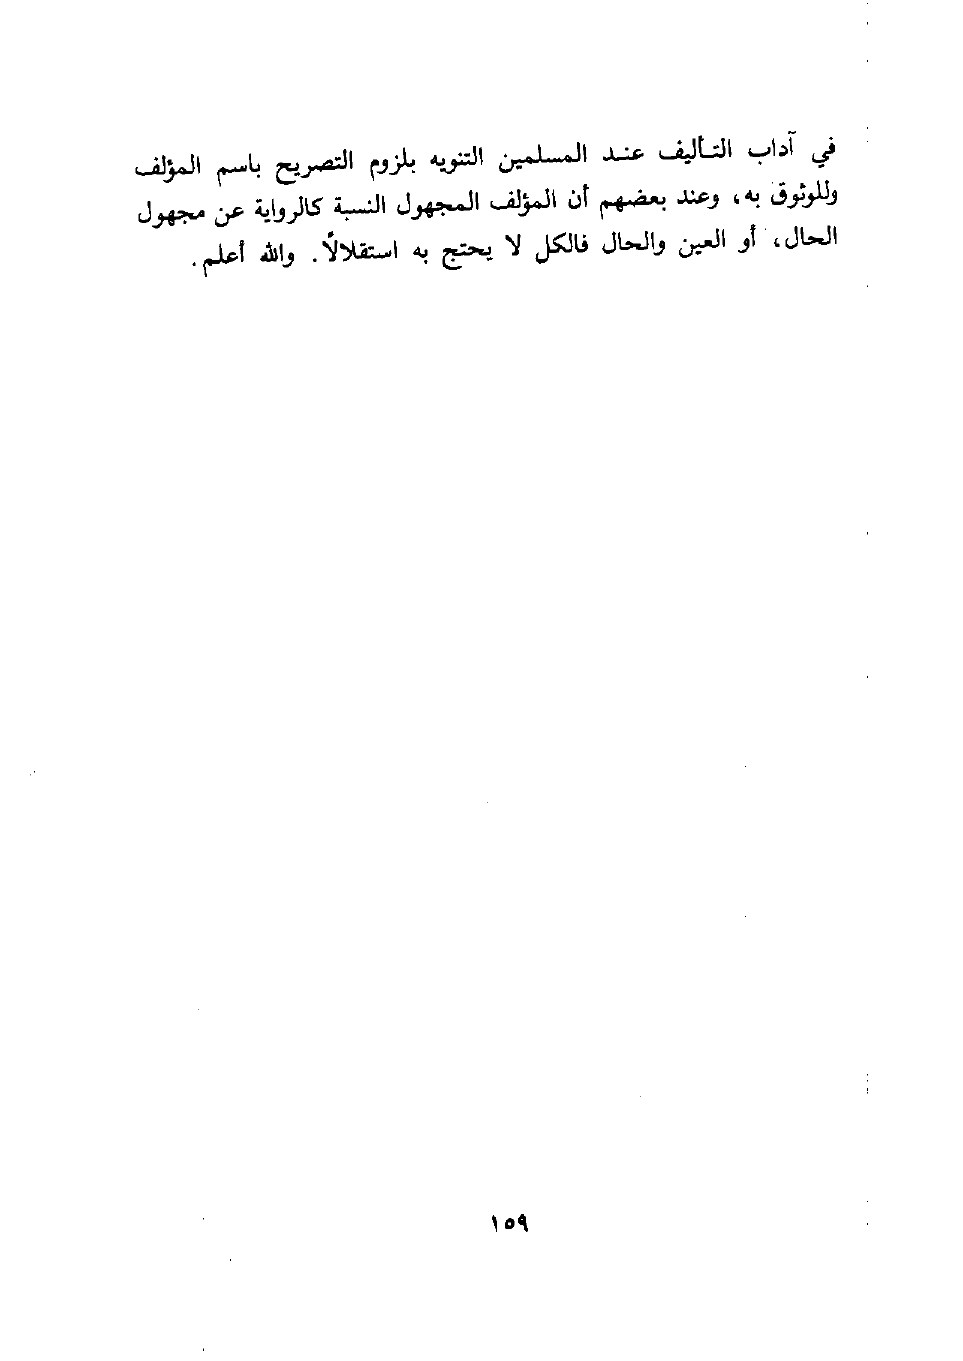 في آداب التأليف عند المسلمين التنويه بلزوم التصريح باسم المؤلف
وللوثوق به، وعند بعضهم أن المؤلف المجهول النسبة كالرواية عن مجهول
الحال، أو العين والحال فالكل لا يحتج به استقلالًا. والله أعلم.
١٥٩